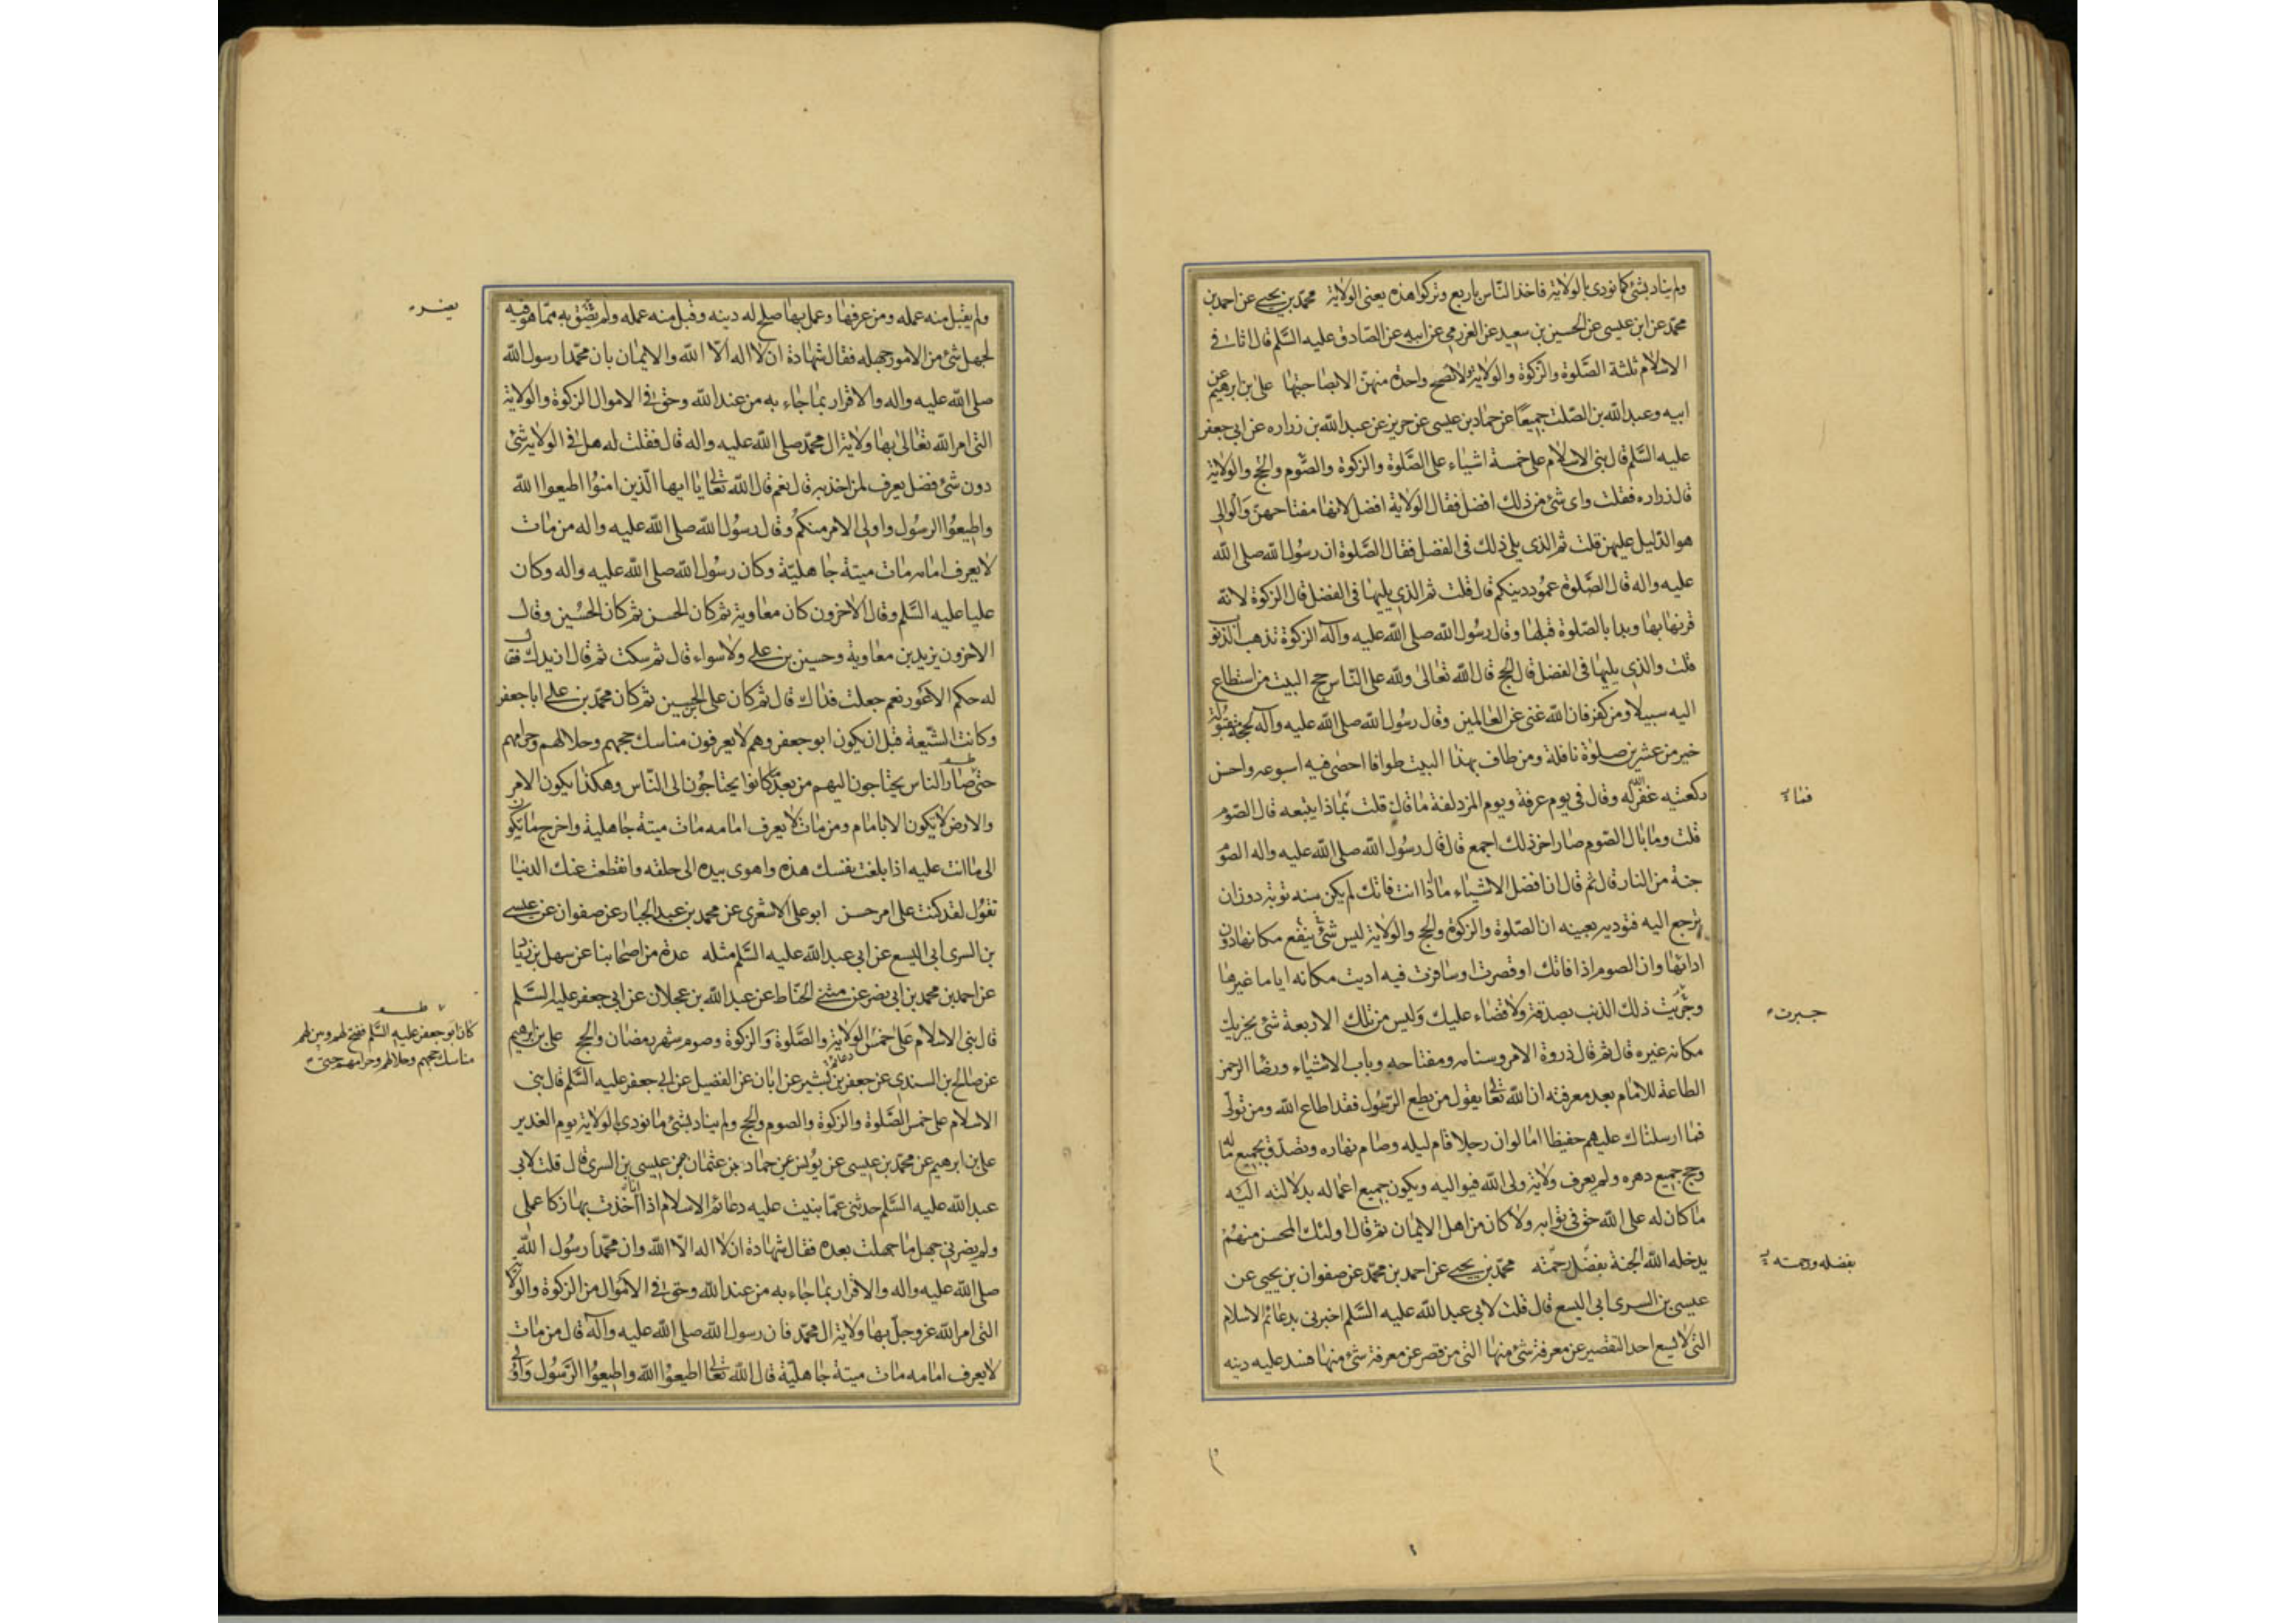 ولم يناد بشئ كما نودى بالولاية فاخذ الناس باربع وتركوا هذه يعنى الولاية محمد بن يحيى عن احمد بن
محمد عن ابن عيسى عن الحسين بن سعيد عن العرزمى عن ابيه عن الصادق عليه السلم قال اثافى
الاسلام ثلثة الصلوة والزكوة والولاية ولا تصح واحدة منهن الا بصاحبتها على بن ابرهيم عن
ابيه وعبد الله بن الصلت جميعا عن حماد بن عيسى عن حريز عن عبد الله بن زراره عن ابى جعفر
عليه السلم قال بنى الاسلام على خمسة اشياء على الصلوة والزكوة والصوم والحج والولاية
قال زراره فقلت واى شئ من ذلك افضل فقال الولاية افضل لانها مفتاحهن والوالى
هو الدليل عليهن قلت ثم الذى يلى ذلك فى الفضل فقال الصلوة ان رسول الله صلى الله
عليه واله قال الصلوة عمود دينكم قال قلت ثم الذى يليها فى الفضل قال الزكوة لانه
قرنها بها وبدا بالصلوة قبلها وقال رسول الله صلى الله عليه وآله الزكوة تذهب الذنوب
قلت والذى يليها فى الفضل قال الحج قال الله تعالى ولله على الناس حج البيت من استطاع
اليه سبيلا ومن كفر فان الله غنى عن العالمين وقال رسول الله صلى الله عليه وآله لحجة مقبولة
خير من عشرين صلوة نافلة ومن طاف بهذا البيت طوافا احصى فيه اسبوعه واحسن
ركعتيه غفر الله له وقال فى يوم عرفة ويوم المزدلفة ما قال قلت بماذا يتبعه قال الصوم
قلت وما بال الصوم صار اخر ذلك اجمع قال قال رسول الله صلى الله عليه واله الصوم
جنة من النار قال ثم قال ان افضل الاشياء ماذا انت فاتك لم يكن منه توبة دون ان
ترجع اليه فتوديه بعينه ان الصلوة والزكوة والحج والولاية ليس شئ ينفع مكانها دون
ادائها وان الصوم اذا فاتك او قصرت او سافرت فيه اديت مكانه اياما غيرها
وجزيت ذلك الذنب بصدقة ولا قضاء عليك وليس من تلك الاربعة شئ يجزيك
مكانه غيره قال ثم قال ذروة الامر وسنامه ومفتاحه وباب الاشياء ورضا الرحمن
الطاعة للامام بعد معرفته ان الله تعالى يقول من يطع الرسول فقد اطاع الله ومن تولى
فما ارسلناك عليهم حفيظا اما لو ان رجلا قام ليله وصام نهاره وتصدق بجميع ماله
وحج جميع دهره ولم يعرف ولاية ولى الله فيواليه ويكون جميع اعماله بدلالته اليه
ما كان له على الله حق فى ثوابه ولا كان من اهل الايمان ثم قال اولئك المحسن منهم
يدخله الله الجنة بفضل رحمته محمد بن يحيى عن احمد بن محمد عن صفوان بن يحيى عن
عيسى بن السرى ابى اليسع قال قلت لابى عبد الله عليه السلم اخبرنى بدعائم الاسلام
التى لا يسع احد التقصير عن معرفة شئ منها التى من قصر عن معرفة شئ منها فسد عليه دينه
فقال
جبرت
بفضله ورحمته
ولم يقبل منه عمله ومن عرفها وعمل بها صلح له دينه وقبل منه عمله ولم يضق به مما هو فيه
لجهل شئ من الامور جهله فقال شهادة ان لا اله الا الله والايمان بان محمدا رسول الله
صلى الله عليه واله والاقرار بما جاء به من عند الله وحق فى الاموال الزكوة والولاية
التى امر الله تعالى بها ولاية ال محمد صلى الله عليه واله قال فقلت له هل فى الولاية شئ
دون شئ فضل يعرف لمن اخذ به قال نعم قال الله تعالى يا ايها الذين امنوا اطيعوا الله
واطيعوا الرسول واولى الامر منكم وقال رسول الله صلى الله عليه واله من مات
لا يعرف امامه مات ميتة جاهلية وكان رسول الله صلى الله عليه واله وكان
عليا عليه السلم وقال الاخرون كان معاوية ثم كان الحسن ثم كان الحسين وقال
الاخرون يزيد بن معاوية وحسين بن على ولا سواء قال ثم سكت ثم قال ازيدك فقال
له حكم الاعور نعم جعلت فداك قال ثم كان على بن الحسين ثم كان محمد بن على ابا جعفر
وكانت الشيعة قبل ان يكون ابو جعفر وهم لا يعرفون مناسك حجهم وحلالهم وحرامهم
حتى صار الناس يحتاجون اليهم من بعد ما كانوا يحتاجون الى الناس وهكذا يكون الامر
والارض لا يكون الا بامام ومن مات لا يعرف امامه مات ميتة جاهلية واخرج ما تكون
الى ما انت عليه اذا بلغت نفسك هذه واهوى بيده الى حلقه وانقطعت عنك الدنيا
تقول لقد كنت على امر حسن ابو على الاشعرى عن محمد بن عبد الجبار عن صفوان عن عيسى
بن السرى ابى اليسع عن ابى عبد الله عليه السلم مثله عدة من اصحابنا عن سهل بن زياد
عن احمد بن محمد بن ابى نصر عن مثنى الحناط عن عبد الله بن عجلان عن ابى جعفر عليه السلم
قال بنى الاسلام على خمس الولاية والصلوة والزكوة وصوم شهر رمضان والحج على بن ابرهيم
عن صالح بن السندى عن جعفر بن بشير عن ابان عن الفضيل عن ابى جعفر عليه السلم قال بنى
الاسلام على خمس الصلوة والزكوة والصوم والحج ولم يناد بشئ ما نودى بالولاية يوم الغدير
على بن ابرهيم عن محمد بن عيسى عن يونس عن حماد بن عثمان عن عيسى بن السرى قال قلت لابى
عبد الله عليه السلم حدثنى عما بنيت عليه دعائم الاسلام اذا انا اخذت بها زكا عملى
ولم يضرنى جهل ما جهلت بعده فقال شهادة ان لا اله الا الله وان محمدا رسول الله
صلى الله عليه واله والاقرار بما جاء به من عند الله وحق فى الاموال من الزكوة والولاية
التى امر الله عز وجل بها ولاية ال محمد فان رسول الله صلى الله عليه وآله قال من مات
لا يعرف امامه مات ميتة جاهلية قال الله تعالى اطيعوا الله واطيعوا الرسول واولى
يضره
كان ابو جعفر عليه السلم ففتح لهم وبين لهم
مناسك حجهم وحلالهم وحرامهم حتى